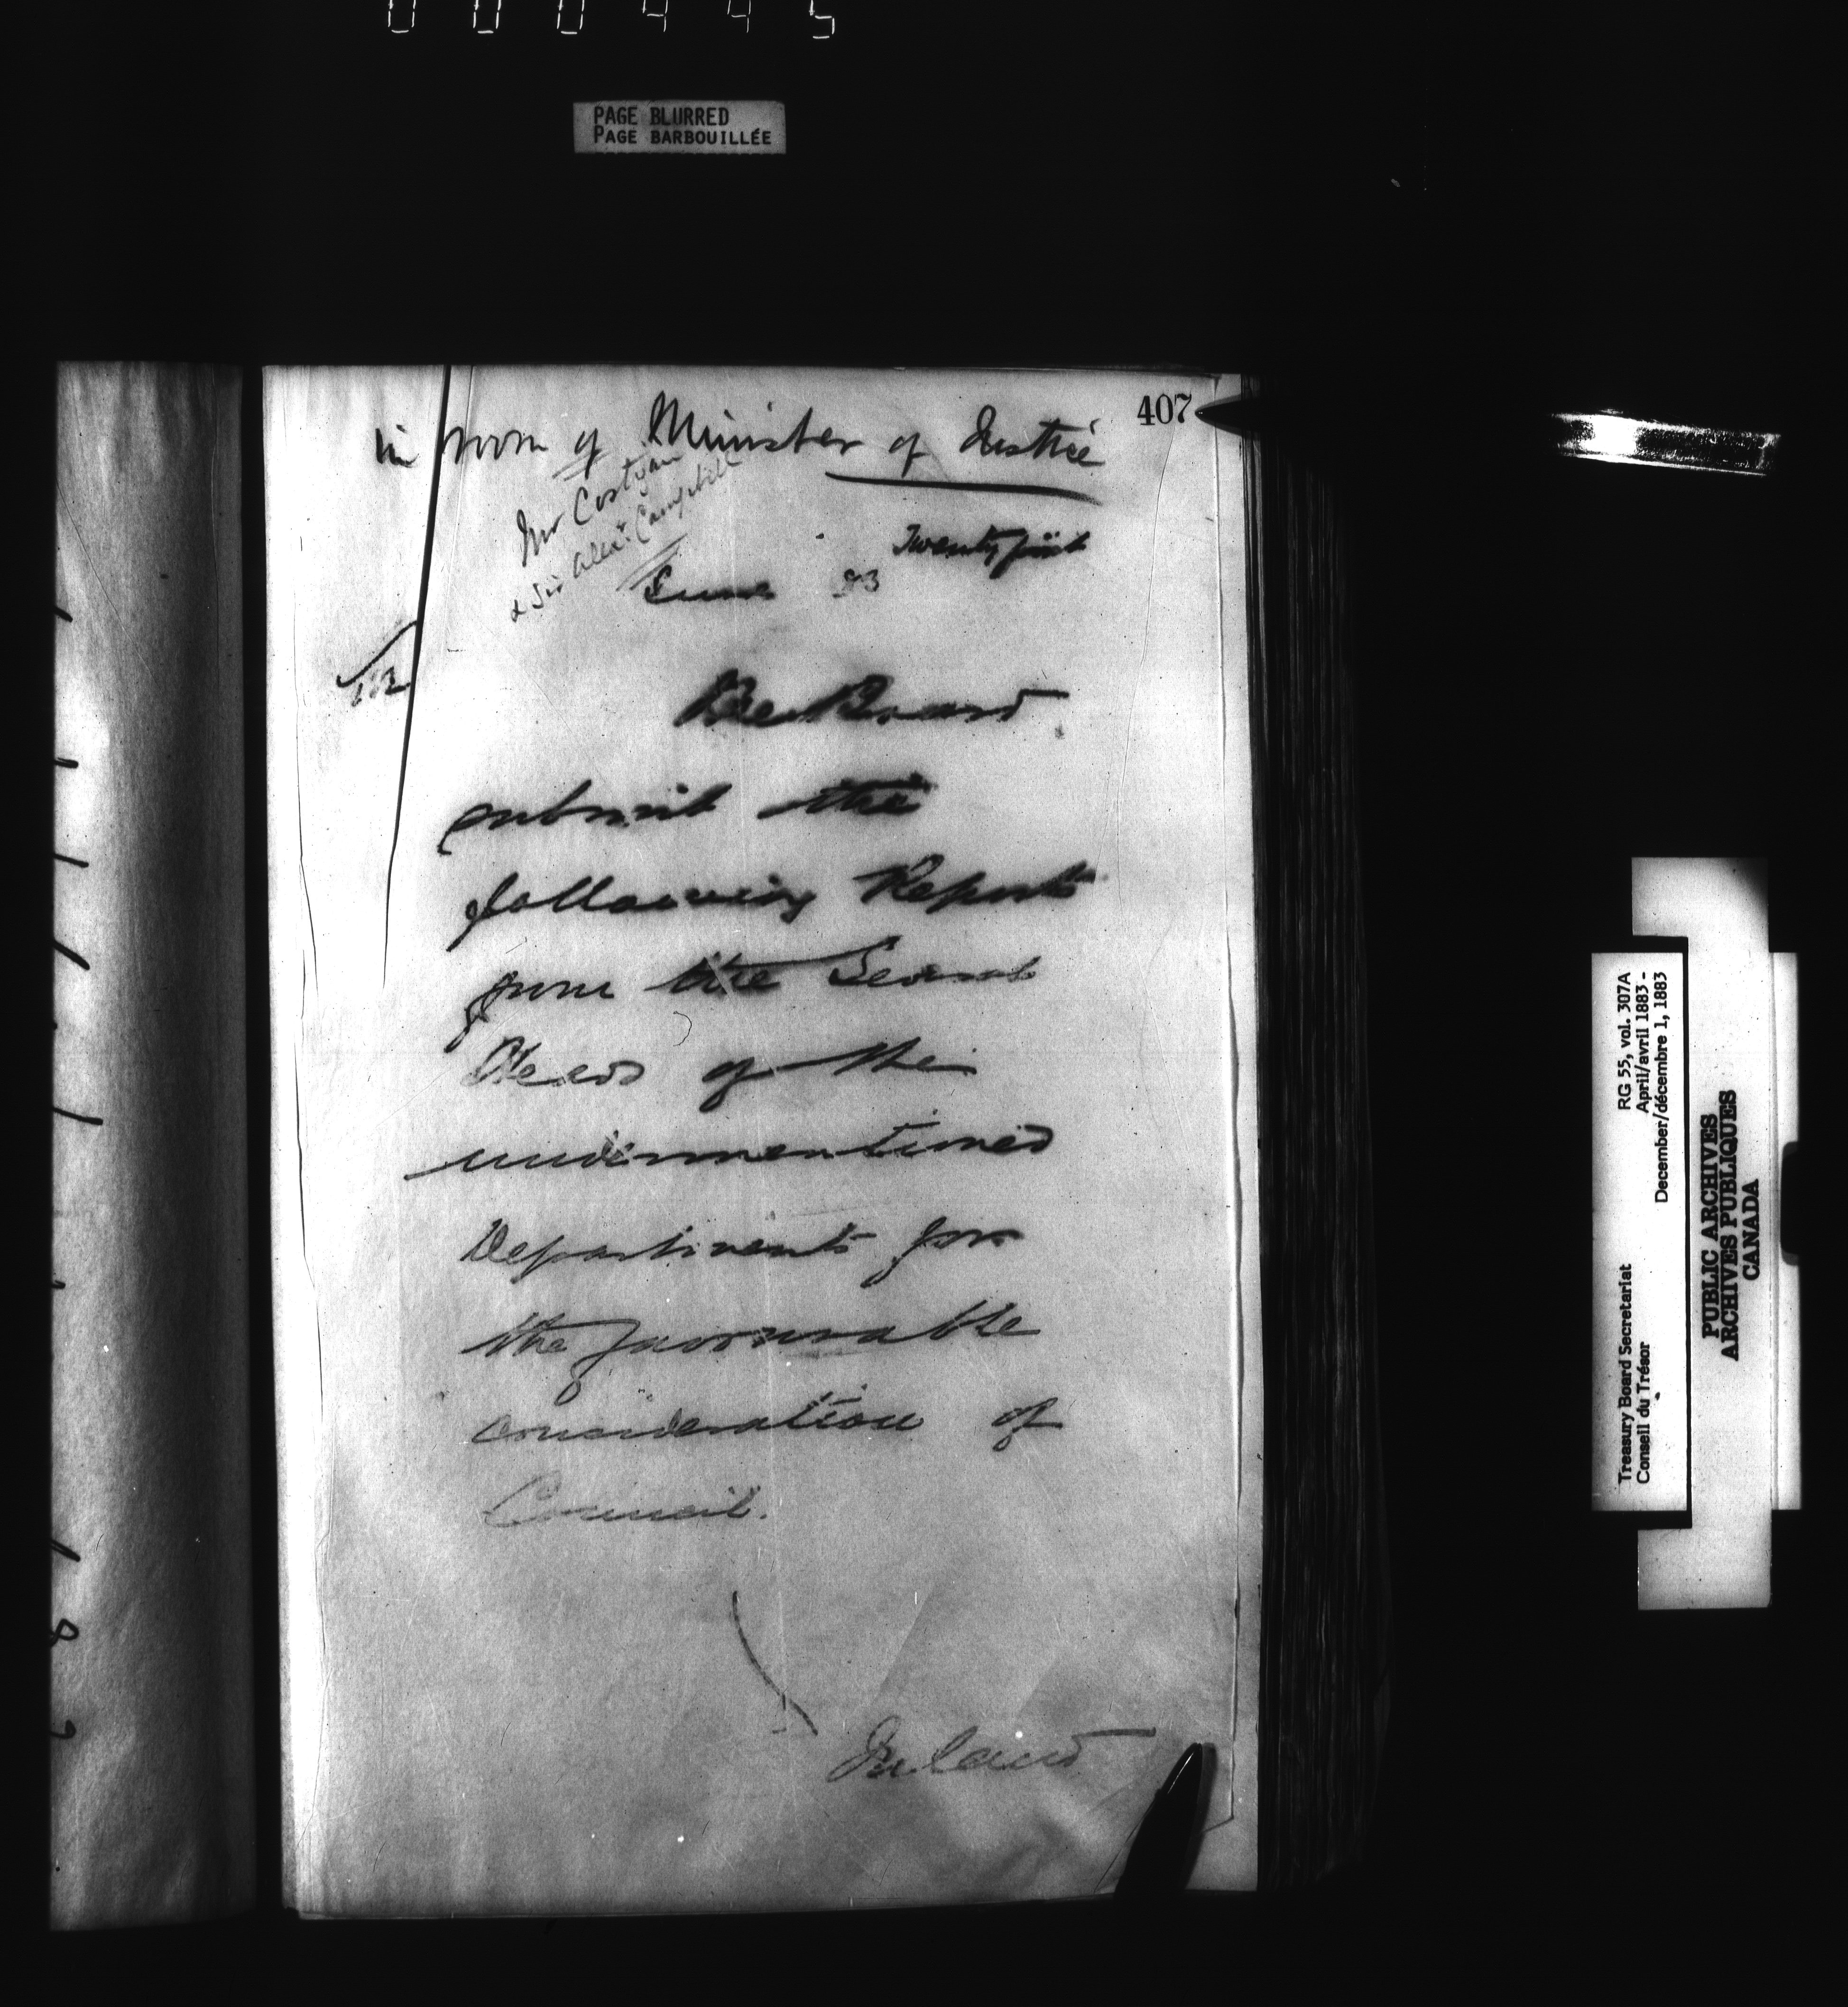 000445
PAGE BLURRED
PAGE BARBOUILLÉE
407
in room of Minister of Justice
Mr Costigan
& Sir Alex: Campbell
Twenty first
June 83
The Board
submit the
following Reports
from the Several
Heads of the
undermentioned
Departments for
the favourable
consideration of
Council.
Inland
RG 55, vol. 307A
April/avril 1883 -
December/décembre 1, 1883
Treasury Board Secretariat
Conseil du Trésor
PUBLIC ARCHIVES
ARCHIVES PUBLIQUES
CANADA